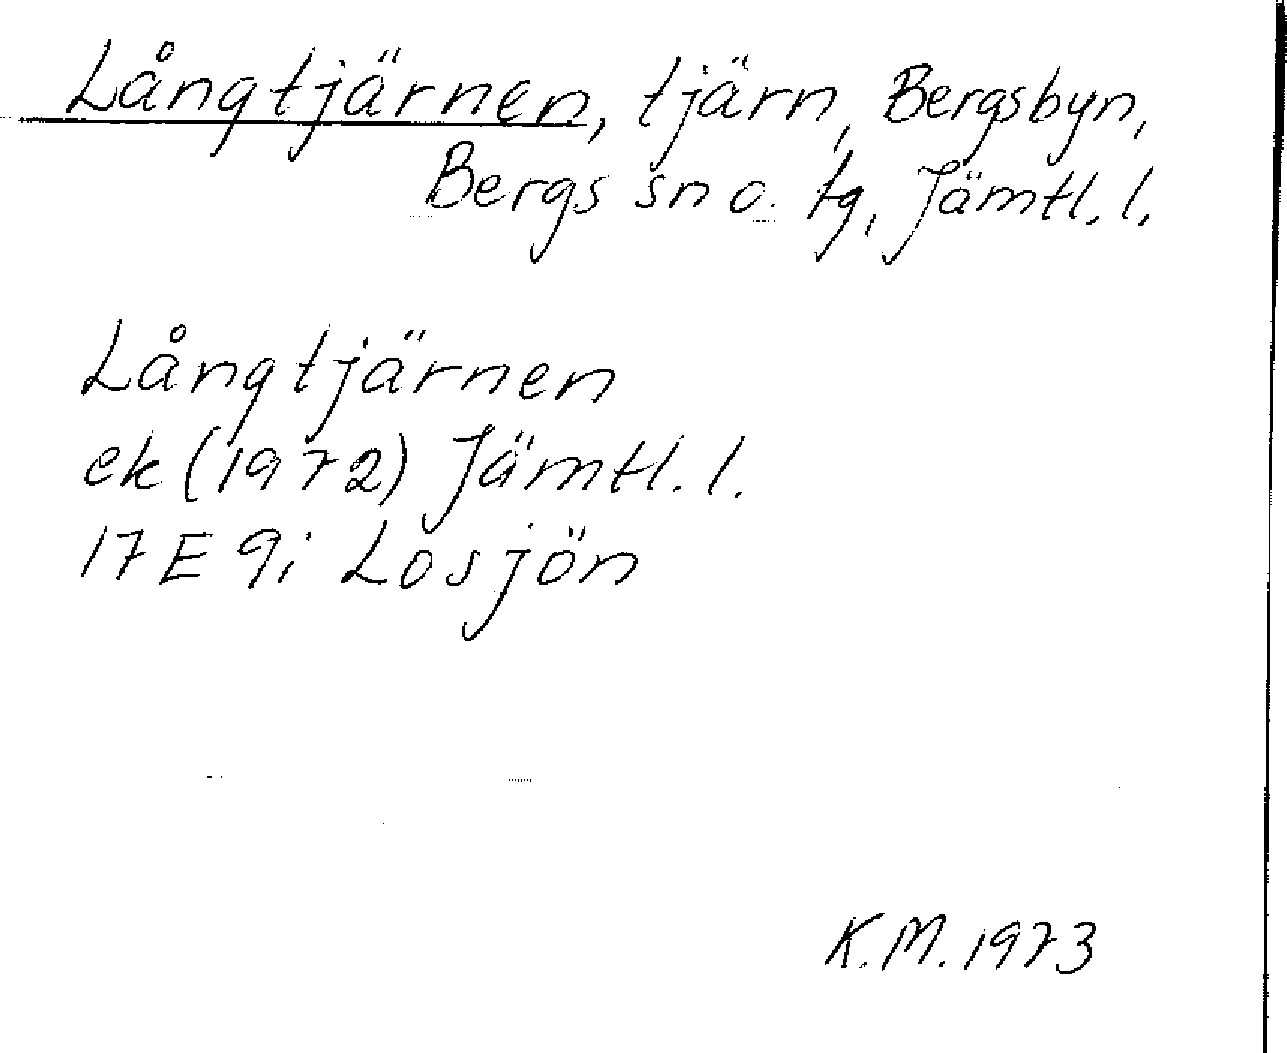 Långtjärnen, tjärn, Bergsbyn,
Bergs sn o. tg, Jämtl. l.
Långtjärnen
ek (1972) Jämtl. l.
17 E 9i Losjön
K.M. 1973